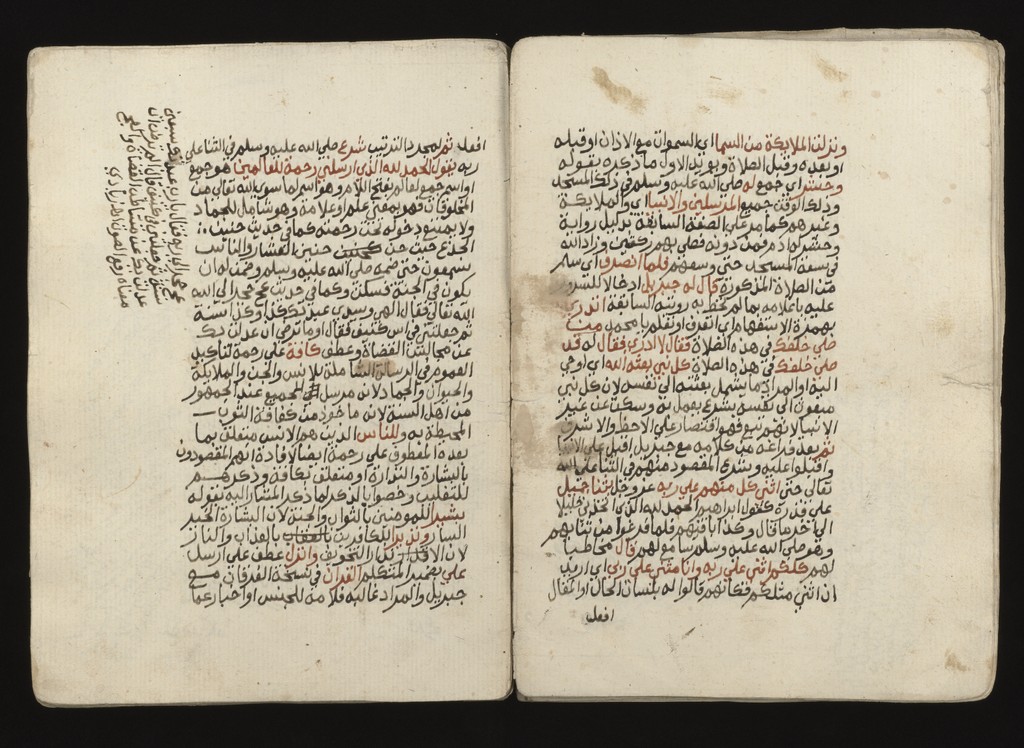 ونزلت الملايكة من السما اي السموات مع الاذان او قبله
او بعده وقبل الصلاة ويويد الاول ما ذكره بقوله
وحشر اي جمع له صلي الله عليه وسلم في ذلك المسجد
وذلك الوقت جميع المرسلين والانبيا اي والملايكة
وغيرهم كما مر علي الصفة السابقة بدليل رواية
وحشر له ادم فمن دونه فصلي بهم ركعتين وزاد الله
في سعة المسجد حتي وسعهم فلما انصرف اي سلم
من الصلاة المذكورة قال له جبريل ادخالا للسرور
عليه باعلامه بما لم تحط به رويته السابقة اتدري
بهمزة الاستفهام اي اتعرف او تعلم يا محمد من
صلي خلفك في هذه الصلاة فقال لا ادري فقال له قد
صلي خلفك في هذه الصلاة كل نبي بعثه الله اي اوحي
اليه او المراد ما يشمل بعثته الي نفسه لان كل نبي
مبعوث الي نفسه بشرع يعمل به وسكت عن غير
الانبيا لانهم تبع فهو اقتصار علي الاحظ والاشرف
ثم بعد فراغه من كلامه مع جبريل اقبل علي الانبيا
واقبلوا عليه وشرع المقصود منهم في الثنا علي الله
تعالي حتي اثني كل منهم علي ربه عز وجل بثنا جميل
علي قدره كقول ابراهيم الحمد لله الذي اتخذني خليلا
الي اخر ما قال وكذا باقيهم فلما فرغوا من ثنايهم
وهو صلي الله عليه وسلم سامع لهم قال مخاطبا
لهم كلكم اثني علي ربه وانا مثني علي ربي اي اريد
ان اثني مثلكم فكانهم قالوا له بلسان الحال او المقال
افعل
افعل ثم لمجرد الترتيب شرع صلي الله عليه وسلم في الثنا علي
ربه يقول الحمد لله الذي ارسلني رحمة للعالمين هو جمع
او اسم جمع لعالم بفتح اللام وهو اسم لما سوي الله تعالي من
المخلوقات فهو بمعني علم او علامة وهو شامل للجماد
ولا يمتنع دخوله تحت رحمته كما في حديث حنين
الجذع حيث حن حنين العشار والناس
يسمعون حتي ضمه صلي الله عليه وسلم وضمن له ان
يكون في الجنة فسكن وكما في حديث عج حجر الي الله
الله تعالي فقال الهي وسيدي عبدتك كذا وكذا سنة
ثم جعلتني في اس كنيف فقال اوما ترضي ان عدلت بك
عن مجالس القضاة وعطف كافة علي رحمة لتاكيد
العموم في الرسالة الشاملة للانس والجن والملايكة
والحيوان والجماد لانه مرسل الي الجميع عند الجمهور
من اهل السنة لانه ماخوذ من كفافة الثوب
المحيطة به وللناس الذين هم الانس متعلق بما
بعده المعطوف علي رحمة ايضا لافادة انهم المقصودون
بالبشارة والنذارة او متعلق بكافة وذكرهم
للتغليب وخصوا بالذكر لما ذكر المشار اليه بقوله
بشيرا للمومنين بالثواب والجنة لان البشارة الخبر
السار ونذيرا للكافرين بالعقاب بالعذاب والنار
لان الانذار التخويف وانزل عطف علي ارسل
علي بضمير المتكلم الفرقان في نسخة القران مع
جبريل والمراد غالبه فلامه للجنس او اخبار عما